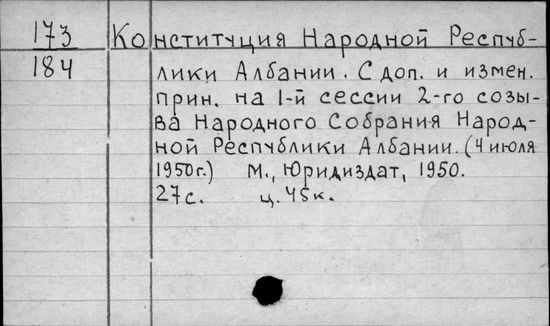 173 Конституция Народной Респуб-
184 лики Албании. С доп. и измен.
прин. на 1-й сессии 2-го созы-
ва Народного Собрания Народ-
ной Республики Албании. (4 июля
1950г.) М., Юридиздат, 1950.
27с. ц. 45к.